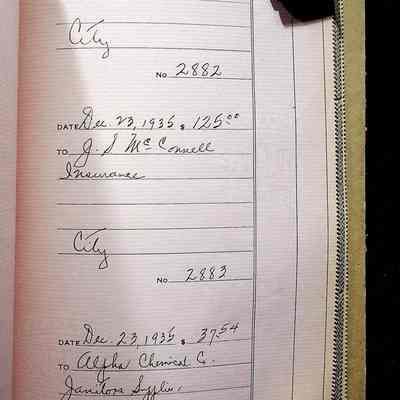 City
No 2882
DATE Dec. 23, 1935 $ 125.00
TO J. S McConnell
Insurance
City
No 2883
DATE Dec. 23, 1935 $ 37.54
TO Alpha Chemical Co.
Janitors Supplies